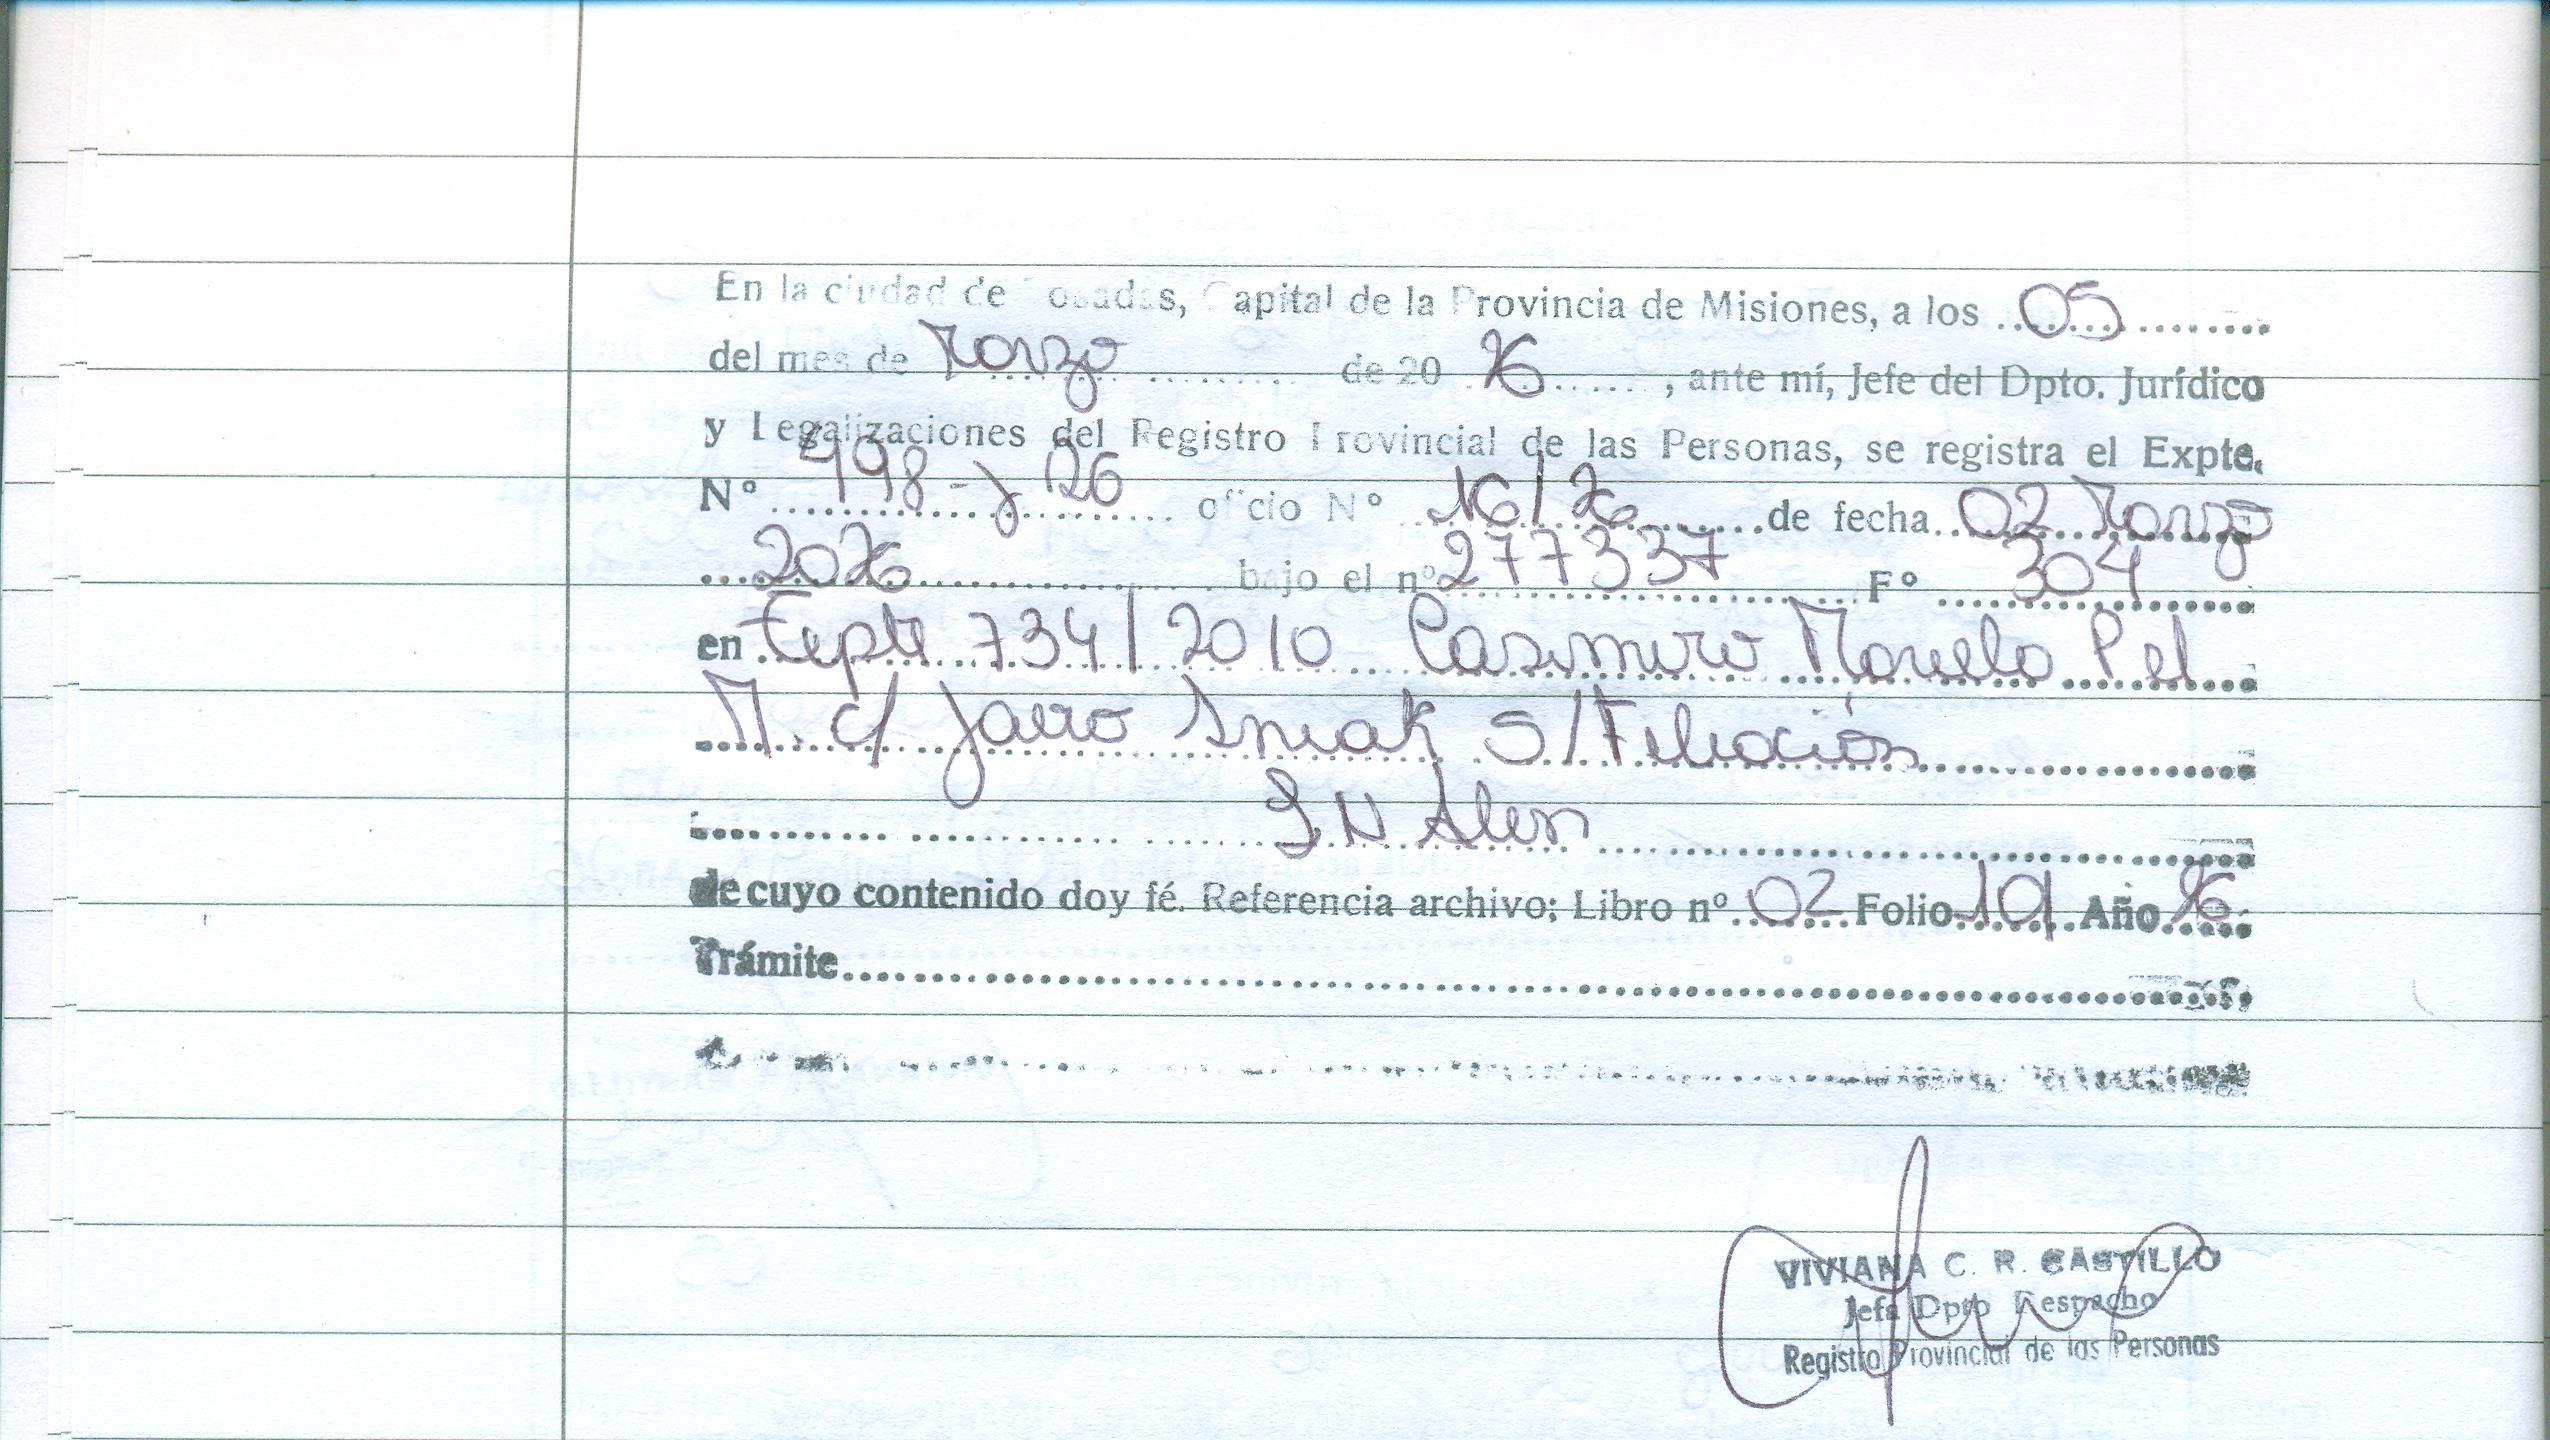 En la ciudad de Posadas, Capital de la Provincia de Misiones, a los 05
del mes de Marzo de 20 26, ante mí, Jefe del Dpto. Jurídico
y Legalizaciones del Registro Provincial de las Personas, se registra el Expte.
N° 498-J 126 oficio N° 16/26 de fecha 02 Marzo
2026 bajo el n° 277337 F° 304
en Expte 734/2010 Casimiro Marcela P el
M. c/ Jairo Sniak S/Filiación
L N Alem
de cuyo contenido doy fé. Referencia archivo; Libro n° 02 Folio 101 Año 26
Trámite
VIVIANA C. R. CASTILLO
Jefa Dpto Despacho
Registro Provincial de las Personas